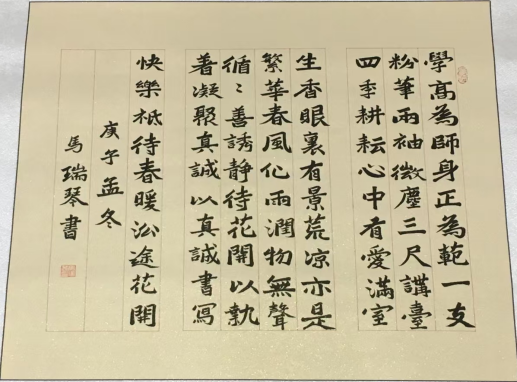 學高為師身正為範一支
粉筆兩袖微塵三尺講臺
四季耕耘心中有愛滿室
生香眼裏有景荒凉亦是
繁華春風化雨潤物無聲
循〻善誘靜待花開以執
著凝聚真誠以真誠書寫
快樂祗待春暖沿途花開
庚子孟冬
馬瑞琴書